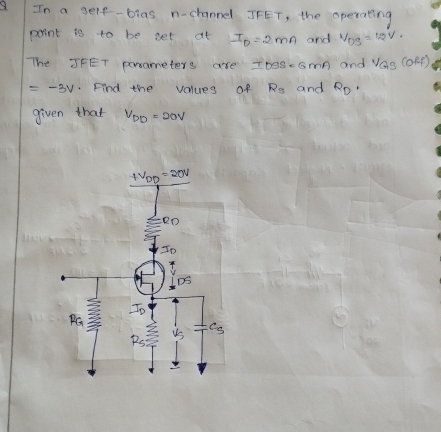 Q In a self-bias n-channel JFET, the operating
point is to be set at ID=2mA and VDS=12V.
The JFET parameters are IDSS=6mA and VGS (off)
= -3V. Find the values of RS and RD.
given that VDD = 20V
+VDD=20V
RD
ID
VDS
ID
RG
RS
VS
CS